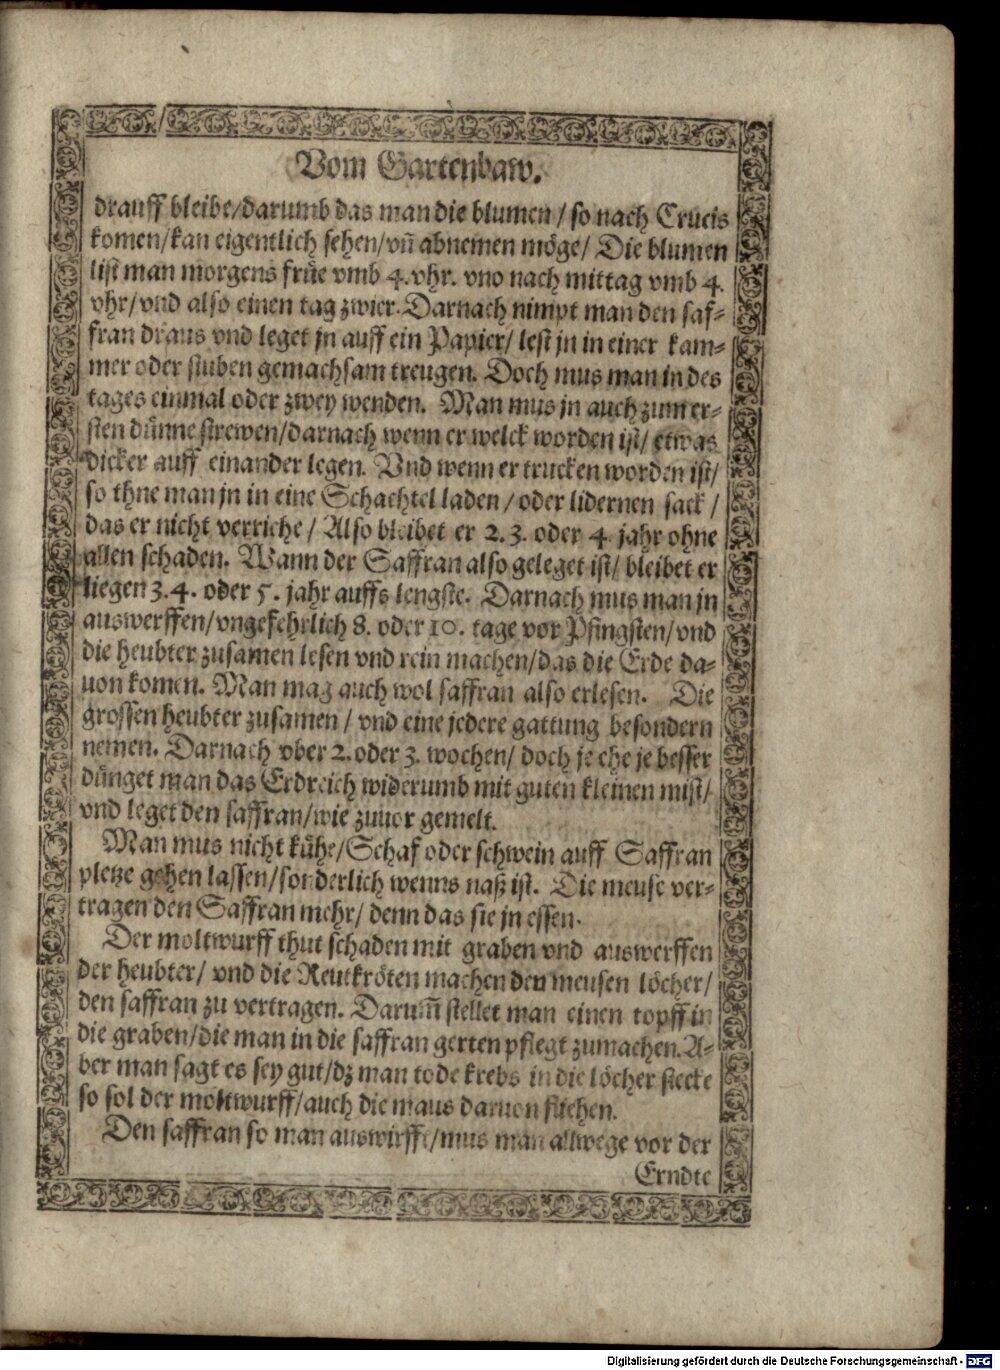 Vom Gartenbaw.
drauff bleibe/darumb das man die blumen/so nach Crucis
komen/kan eigentlich sehen/vñ abnemen möge/ Die blumen
list man morgens früe vmb 4. vhr. vno nach mittag vmb 4.
vhr/vnd also einen tag zwier. Darnach nimpt man den saf-
fran draus vnd leget jn auff ein Papier/ lest jn in einer kam-
mer oder stuben gemachsam treugen. Doch mus man in des
tages einmal oder zwey wenden. Man mus jn auch zum er-
sten dünne strewen/darnach wenn er welck worden ist/ etwas
dicker auff einander legen. Vnd wenn er trucken worden ist/
so thne man jn in eine Schachtel laden/oder lidernen sack/
das er nicht verriche/ Also bleibet er 2. 3. oder 4. jahr ohne
allen schaden. Wann der Saffran also geleget ist/ bleibet er
liegen 3. 4. oder 5. jahr auffs lengste. Darnach mus man jn
auswerffen/vngefehrlich 8. oder 10. tage vor Pfingsten/vnd
die heubter zusamen lesen vnd rein machen/das die Erde da-
uon komen. Man mag auch wol saffran also erlesen. Die
grossen heubter zusamen/ vnd eine jedere gattung besondern
nemen. Darnach vber 2. oder 3. wochen/ doch je ehe je besser
dünget man das Erdreich widerumb mit guten kleinen mist/
vnd leget den saffran/wie zuuor gemelt.
Man mus nicht kühe/Schaf oder schwein auff Saffran
pletze gehen lassen/sonderlich wenns naß ist. Die meuse ver-
tragen den Saffran mehr/ denn das sie jn essen.
Der moltwurff thut schaden mit graben vnd auswerffen
der heubter/ vnd die Reutkröten machen den meusen löcher/
den saffran zu vertragen. Darum̃ stellet man einen topff in
die graben/die man in die saffran gerten pflegt zumachen. A-
ber man sagt es sey gut/dz man tode krebs in die löcher stecke
so sol der moltwurff/auch die maus daruon fliehen.
Den saffran so man auswirfft/mus man allwege vor der
Erndte
Digitalisierung gefördert durch die Deutsche Forschungsgemeinschaft - DFG